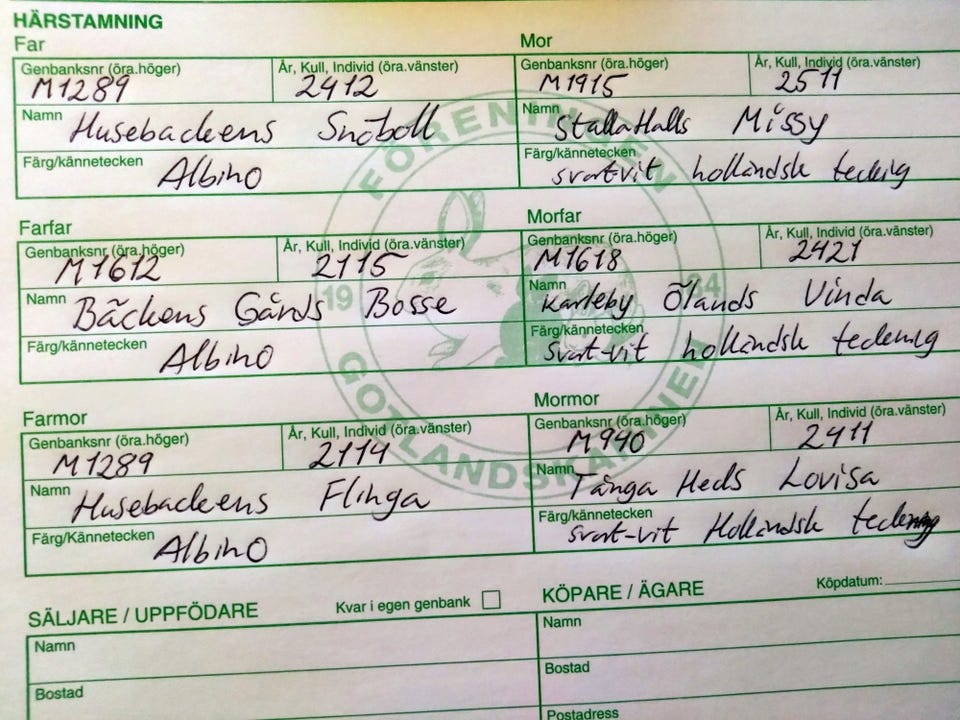 HÄRSTAMNING
Far
Mor
Genbanksnr (öra.höger)
År, Kull, Individ (öra.vänster)
Genbanksnr (öra.höger)
År, Kull, Individ (öra.vänster)
M1289
2412
M1915
2511
Namn Husebackens Snöboll
Namn Stallatlalls Missy
Färg/kännetecken Albino
Färg/kännetecken
svart-vit holländsk teckning
Farfar
Morfar
Genbanksnr (öra.höger)
År, Kull, Individ (öra.vänster)
Genbanksnr (öra.höger)
År, Kull, Individ (öra.vänster)
M1612
2115
M1618
2421
Namn Bäckens Gårds Bosse
Namn Karleby Ölands Vinda
Färg/kännetecken Albino
Färg/kännetecken
svart-vit holländsk teckning
Farmor
Mormor
Genbanksnr (öra.höger)
År, Kull, Individ (öra.vänster)
Genbanksnr (öra.höger)
År, Kull, Individ (öra.vänster)
M1289
2114
M940
2411
Namn Husebackens Flinga
Namn Tånga Heds Lovisa
Färg/Kännetecken Albino
Färg/kännetecken
svart-vit Holländsk teckning
FÖRENINGEN
19 84
GOTLANDSKANINEN
SÄLJARE / UPPFÖDARE
Kvar i egen genbank
KÖPARE / ÄGARE
Köpdatum:
Namn
Namn
Bostad
Bostad
Postadress